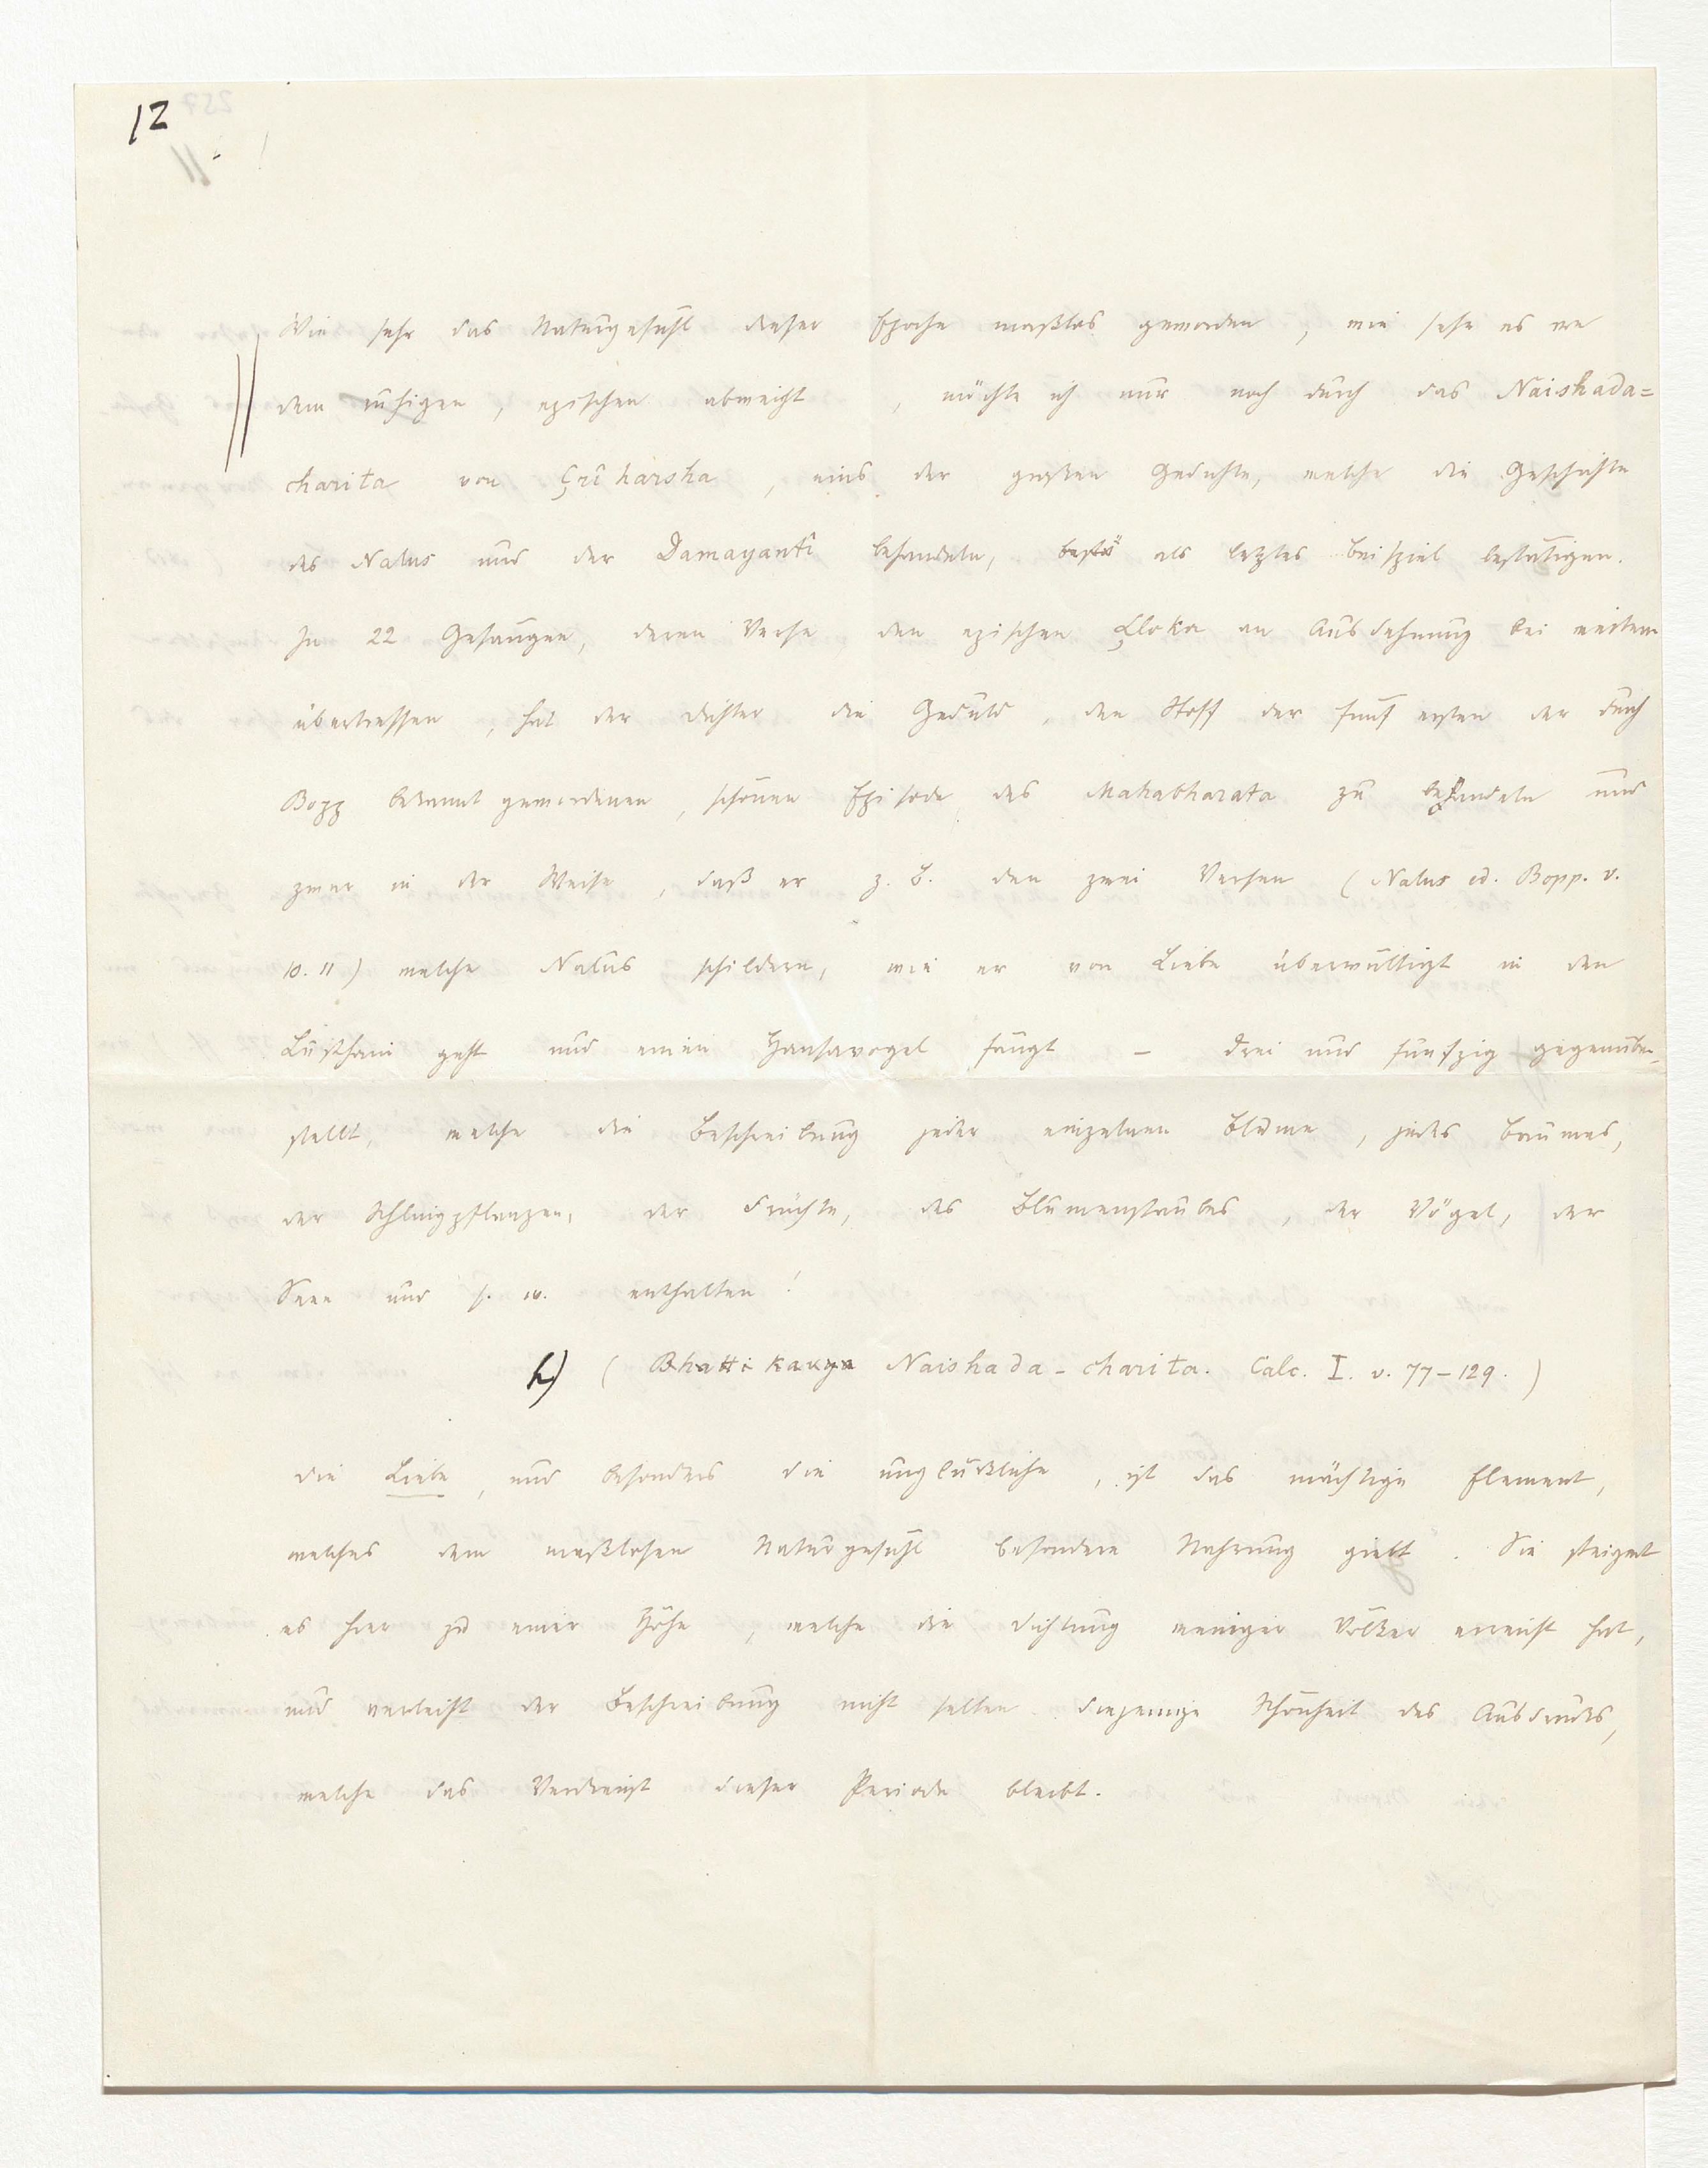 12
Wie sehr das Naturgefühl dieser Epoche maßlos geworden, wie sehr es von
dem ruhigen, epischen abweicht, möchte ich nur noch durch das Naishada=
charita von Çrîharsha, eins der großen Gedichte, welche die Geschichte
des Nalus und der Damayantî behandeln, bestä als letztes Beispiel bestätigen.
In 22 Gesängen, deren Verse den epischen Çloka an Ausdehnung bei weitem
übertreffen, hat der Dichter die Geduld, den Stoff der fünf ersten der durch
Bopp bekannt gewordenen, schönen Episode des Mahabharata zu behandeln und
zwar in der Weise, daß er z. B. den zwei Versen (Nalus ed. Bopp. v.
10. 11) welche Nalus schildern, wie er von Liebe überwältigt in den
Lusthain geht und einen Hansavogel fängt – drei und fünfzig gegenüber-
stellt, welche die Beschreibung jeder einzelnen Blume, jedes Baumes,
der Schlingpflanzen, der Früchte, des Blumenstaubes, der Vögel, der
Seen und s. w. enthalten!
h) (Bhattikavya Naishada-charita. Calc. I. v. 77–129.)
Die Liebe, und besonders die unglückliche, ist das mächtige Element,
welches dem maßlosen Naturgefühl besondere Nahrung giebt. Sie steigert
es hier zu einer Höhe, welche die Dichtung weniger Völker erreicht hat,
und verleiht der Beschreibung nicht selten diejenige Schönheit des Ausdrucks,
welche das Verdienst dieser Periode bleibt.